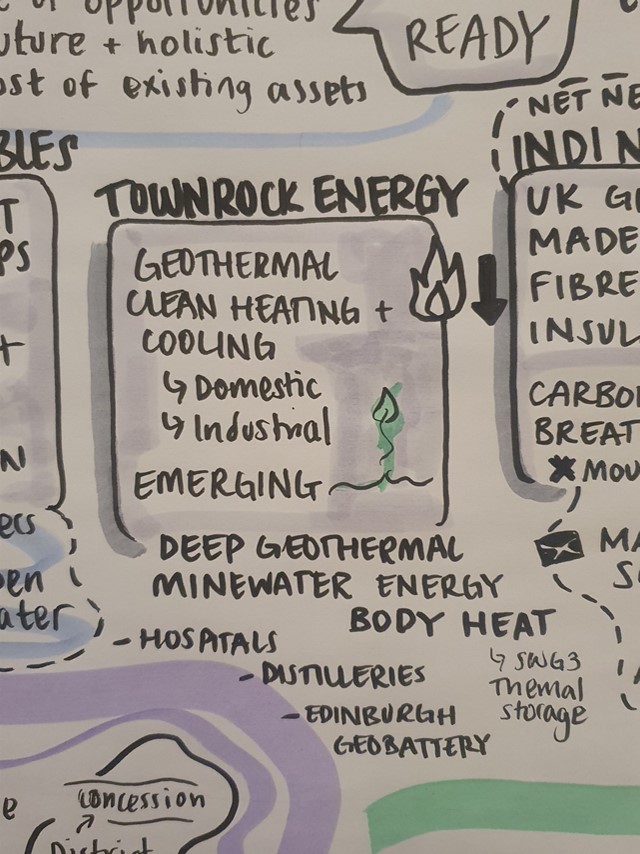 of opportunities
uture + holistic
ost of existing assets
READY
BLES
T
PS
+
N
ecs
pen
ater
TOWNROCK ENERGY
GEOTHERMAL
CLEAN HEATING +
COOLING
↳ Domestic
↳ Industrial
EMERGING
DEEP GEOTHERMAL
MINEWATER ENERGY
BODY HEAT
↳ SWG3
Themal
storage
- HOSPITALS
- DISTILLERIES
- EDINBURGH
GEOBATTERY
NET NE
INDI N
UK G
MADE
FIBRE
INSUL
CARBO
BREAT
MOU
MA
S
e
concession
District